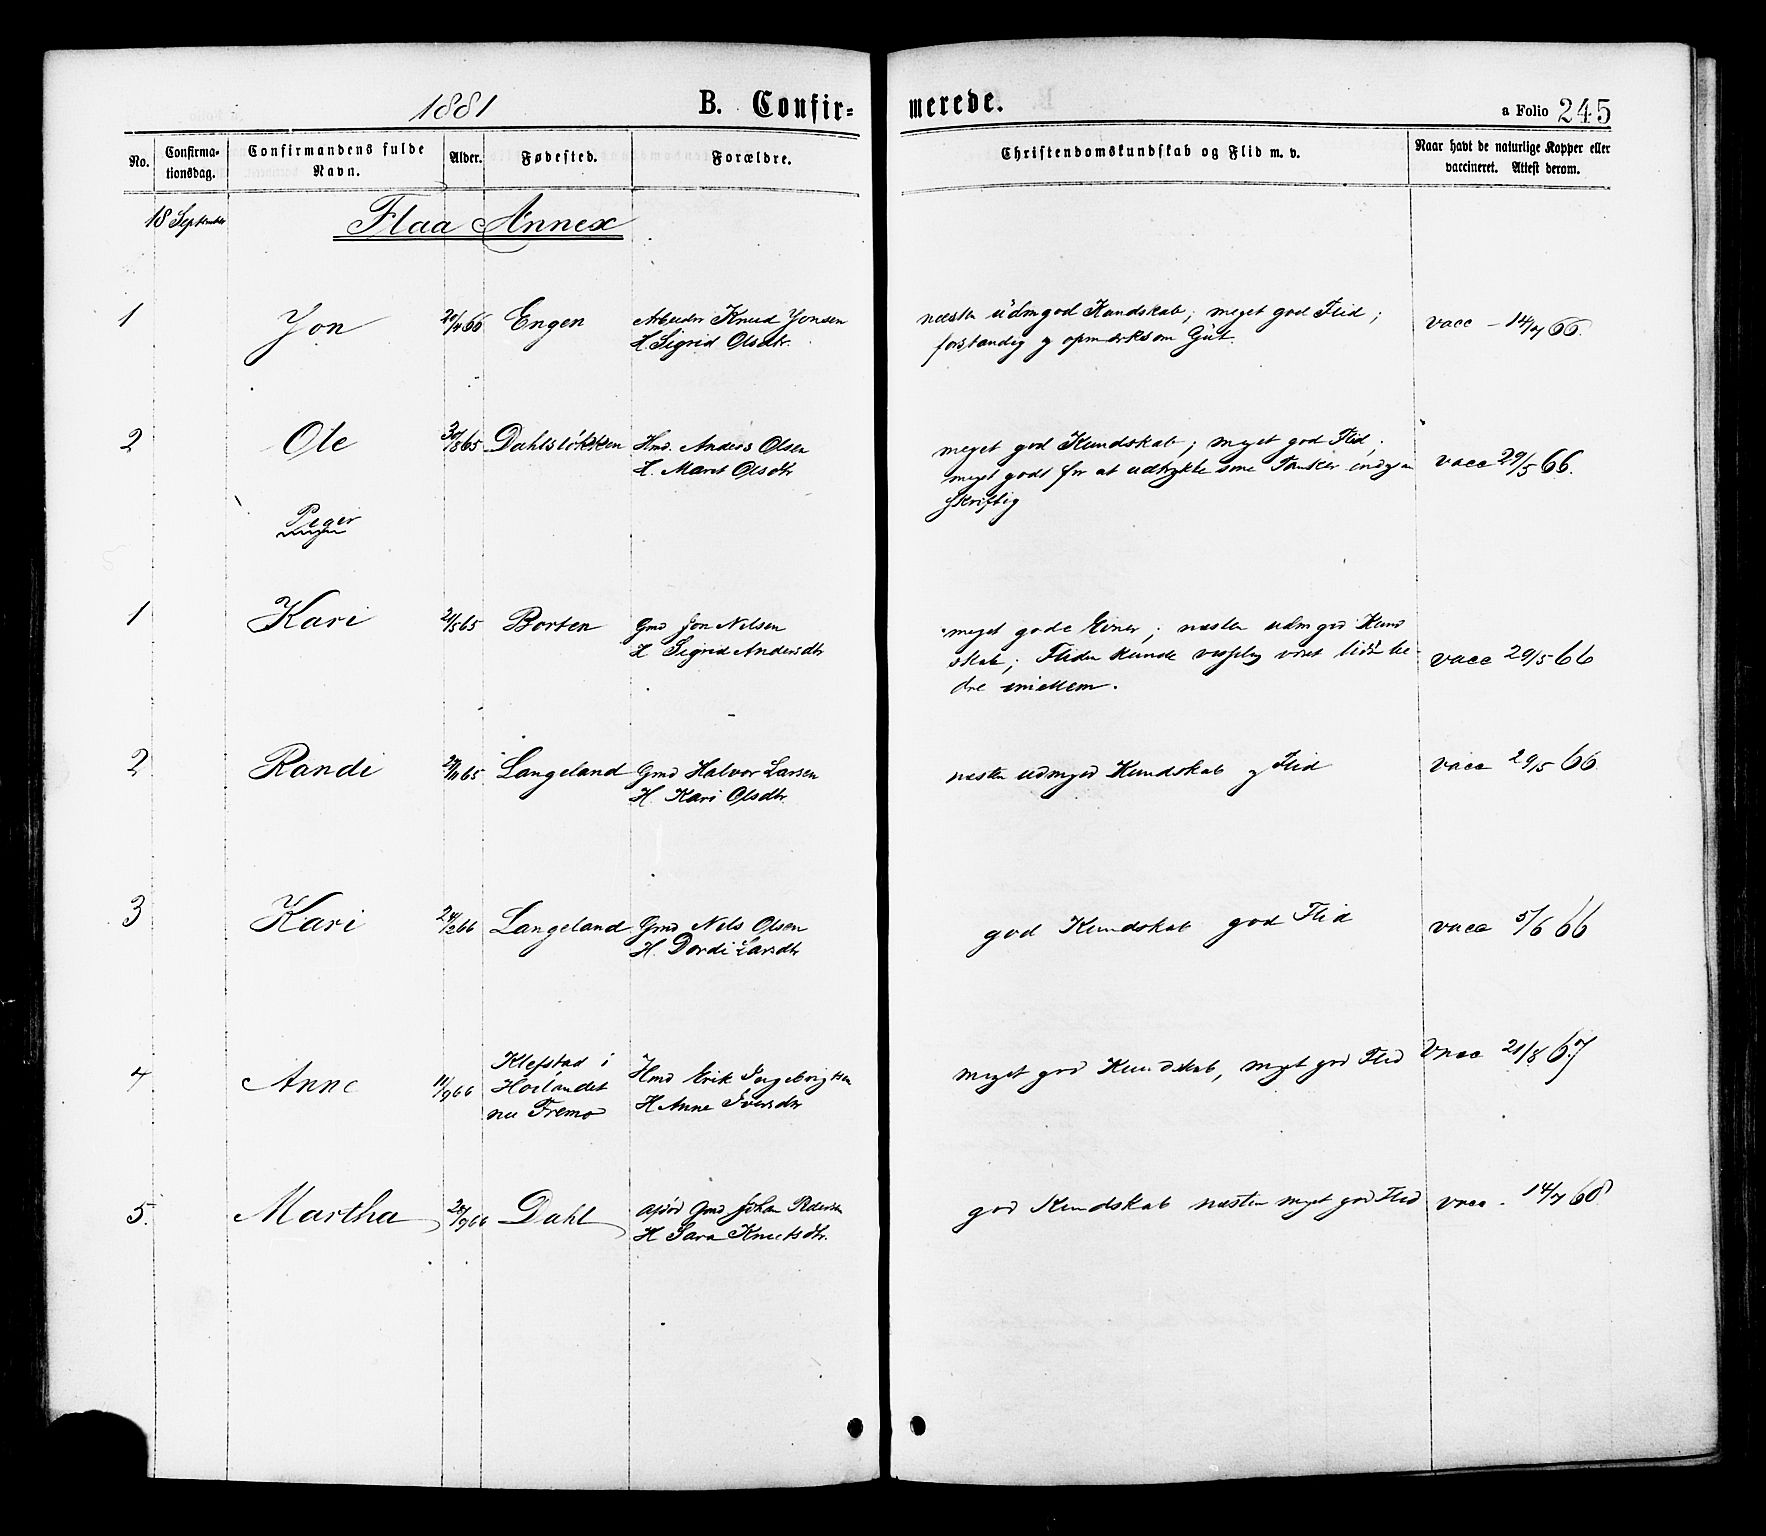 1881
B. Confir-
merede.
a Folio 245
No.
Confirma-
tionsdag.
Confirmandens fulde
Navn.
Alder.
Fødested.
Forældre.
Christendomskundskab og Flid m. v.
Naar havt de naturlige Kopper eller
vaccineret. Attest derom.
18 September
Flaa Annex
1 Jon Engen
Arbeider Knud Jonsen
H. Sigrid Olsdtr.
næsten udmgod Kundskab; meget god Flid;
forstandig og opmærksom Gut.
vacc - 14/7 66.
2 Ole 30/8 65 Dahlsløkken
Hmd. Anders Olsen
H. Marit Olsdtr
meget god Kundskab; meget god Flid;
meget godt for at udtrykke sine Tanker
skriftlig
vacc 29/5 66.
Peger
1 Kari 2/5 65 Borten
Gmd Jon Nilsen
H Sigrid Andersdtr
meget gode Evner; næsten udm god Kund
skab; Fliden kunde været lidt be-
dre imellem.
vacc 29/5 66
2 Randi Langeland
Gmd Halvor Larsen
H. Kari Olsdtr.
næsten udmgod Kundskab og Flid
vacc 29/5 66
3 Kari 24/2 66 Langeland
Gmd Nils Olsen
H. Dordi Larsdtr
god Kundskab god Flid
vacc 5/6 66
4 Anne 11/9 66
Klefstad i
Hølandet
nu Fremo
Hmd Erik Ingebrigtsen
H Anne Iversdtr
meget god Kundskab, meget god Flid
Vacc 21/8 67
5. Martha Dahl
Gmd Johan Pedersen
H Sara Knutsdtr.
god Kundskab næsten meget god Flid
vacc. 14/7 68